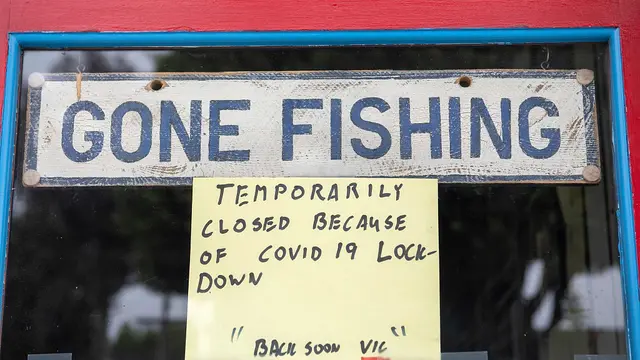 GONE FISHING
TEMPORARILY
CLOSED BECAUSE
OF COVID 19 LOCK-
DOWN
"BACK SOON VIC"